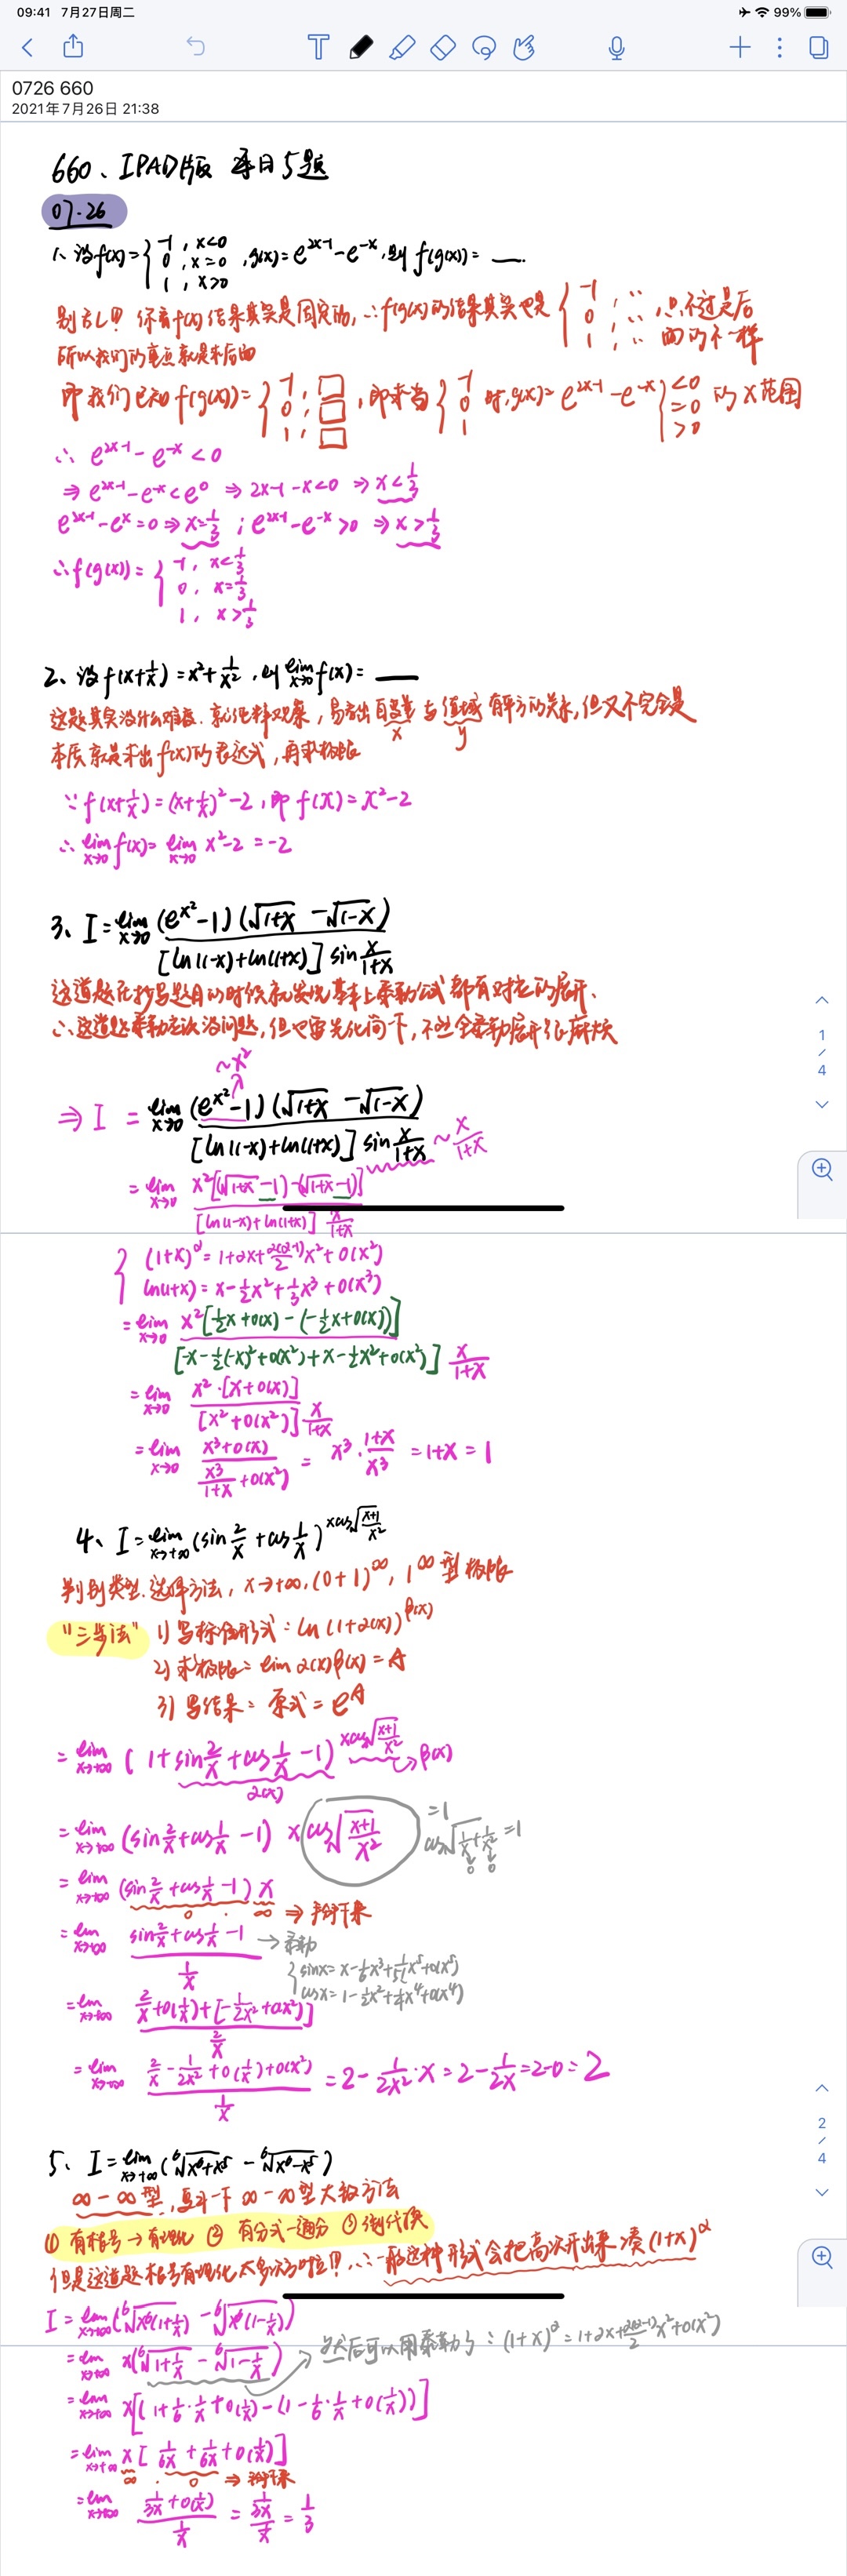 09:41 7月27日周二
99%
0726 660
2021年7月26日 21:38
660、IPAD版 每日5题
07-26
1、设f(x)={-1, x<0; 0, x=0; 1, x>0 , g(x)=e^{2x-1}-e^{-x}, 则 f(g(x))= __.
别方し!! 你看f(x)结果其实是固定的, ∴f(g(x))的结果其实也是 {-1, ∵; 0, ∵; 1, ∵ ,只不过是后面的不一样
所以我们的重点就是求后面
即我们已知f(g(x))={-1, □; 0, □; 1, □ , 即求当{-1; 0; 1 时,g(x)=e^{2x-1}-e^{-x} {<0; =0; >0 的x范围
∴ e^{2x-1}-e^{-x}<0
⇒ e^{2x-1}-e^{-x}<e^0 ⇒ 2x-1-x<0 ⇒ x<1/3
e^{2x-1}-e^{x}=0 ⇒ x=1/3 ; e^{2x-1}-e^{-x}>0 ⇒ x>1/3
∴f(g(x))={-1, x<1/3; 0, x=1/3; 1, x>1/3
2、设f(x+1/x)=x²+1/x², 则 lim x→0 f(x)= __
这题其实没什么难度. 就是观察, 易看出自变量与值域有平方的关系, 但又不完全是
x y
本质就是求出f(x)的表达式, 再求极限
∵f(x+1/x)=(x+1/x)²-2, 即 f(x)=x²-2
∴ lim x→0 f(x)= lim x→0 x²-2 =-2
3、I=lim x→0 (e^{x²}-1)(√(1+x)-√(1-x)) / [ln(1-x)+ln(1+x)] sin x/(1+x)
这道题在抄写题目的时候就发现基本上泰勒公式都有对应的展开、
∴这道题泰勒应该没问题, 但也需先化简下, 不然全泰勒展开很麻烦
~x²
⇒ I = lim x→0 (e^{x²}-1)(√(1+x)-√(1-x)) / [ln(1-x)+ln(1+x)] sin x/(1+x) ~ x/(1+x)
= lim x→0 x²[(√(1+x)-1)-(√(1+x)-1)] / [ln(1-x)+ln(1+x)] x/(1+x)
1/4
{(1+x)^α=1+αx+α(α-1)/2 x²+o(x²)
ln(1+x)=x-1/2x²+1/3x³+o(x³)
= lim x→0 x²[1/2x+o(x)-(-1/2x+o(x))] / [-x-1/2(-x)²+o(x²)+x-1/2x²+o(x²)] x/(1+x)
= lim x→0 x²·[x+o(x)] / [x²+o(x²)] x/(1+x)
= lim x→0 (x³+o(x)) / (x³/(1+x)+o(x²)) = x³·(1+x)/x³ =1+x=1
4、I=lim x→+∞ (sin 2/x +cos 1/x)^{xcos√((x+1)/x²)}
判别类型. 选择方法, x→+∞, (0+1)^∞, 1^∞型极限
"三步法" 1) 写标准形式: ln(1+α(x))^{β(x)}
2) 求极限: lim α(x)β(x)=A
3) 写结果: 原式=e^A
= lim x→+∞ (1+sin 2/x +cos 1/x -1)^{xcos√((x+1)/x²)} → β(x)
α(x)
= lim x→+∞ (sin 2/x+cos 1/x -1) x cos√((x+1)/x²) =1
cos√(1/x+1/x²)=1
0 0
= lim x→+∞ (sin 2/x +cos 1/x -1) x
0 · ∞ ⇒
= lim x→+∞ (sin 2/x+cos 1/x -1) / (1/x) → 泰勒
{sinx=x-1/6x³+1/5!x⁵+o(x⁵)
cosx=1-1/2x²+1/4x⁴+o(x⁴)
= lim x→+∞ (2/x+o(1/x)+[-1/2x²+o(x²)]) / (2/x)
= lim x→+∞ (2/x-1/2x²+o(1/x)+o(x²)) / (1/x) =2-1/2x²·x=2-1/2x=2-0=2
2/4
5、I=lim x→+∞ (⁶√(x⁶+x⁵) - ⁶√(x⁶-x⁵))
∞-∞型, 复习一下∞-∞型大致方法
① 有根号→有理化 ② 有分式→通分 ③ 倒代换
但是这道题根号有理化太多次方啦!! ∴一般这种形式会把高次开出来凑(1+x)^α
I=lim x→+∞ (⁶√(x⁶(1+1/x)) - ⁶√(x⁶(1-1/x)))
= lim x→+∞ x(⁶√(1+1/x) - ⁶√(1-1/x)) → 然后可以用泰勒了: (1+x)^α=1+αx+α(α-1)/2 x²+o(x²)
= lim x→+∞ x[(1+1/6·1/x+o(1/x))-(1-1/6·1/x+o(1/x))]
= lim x→+∞ x[1/6x+1/6x+o(1/x)]
∞ · 0 ⇒
= lim x→+∞ (1/3x+o(1/x)) / (1/x) = (1/3x)/(1/x) = 1/3